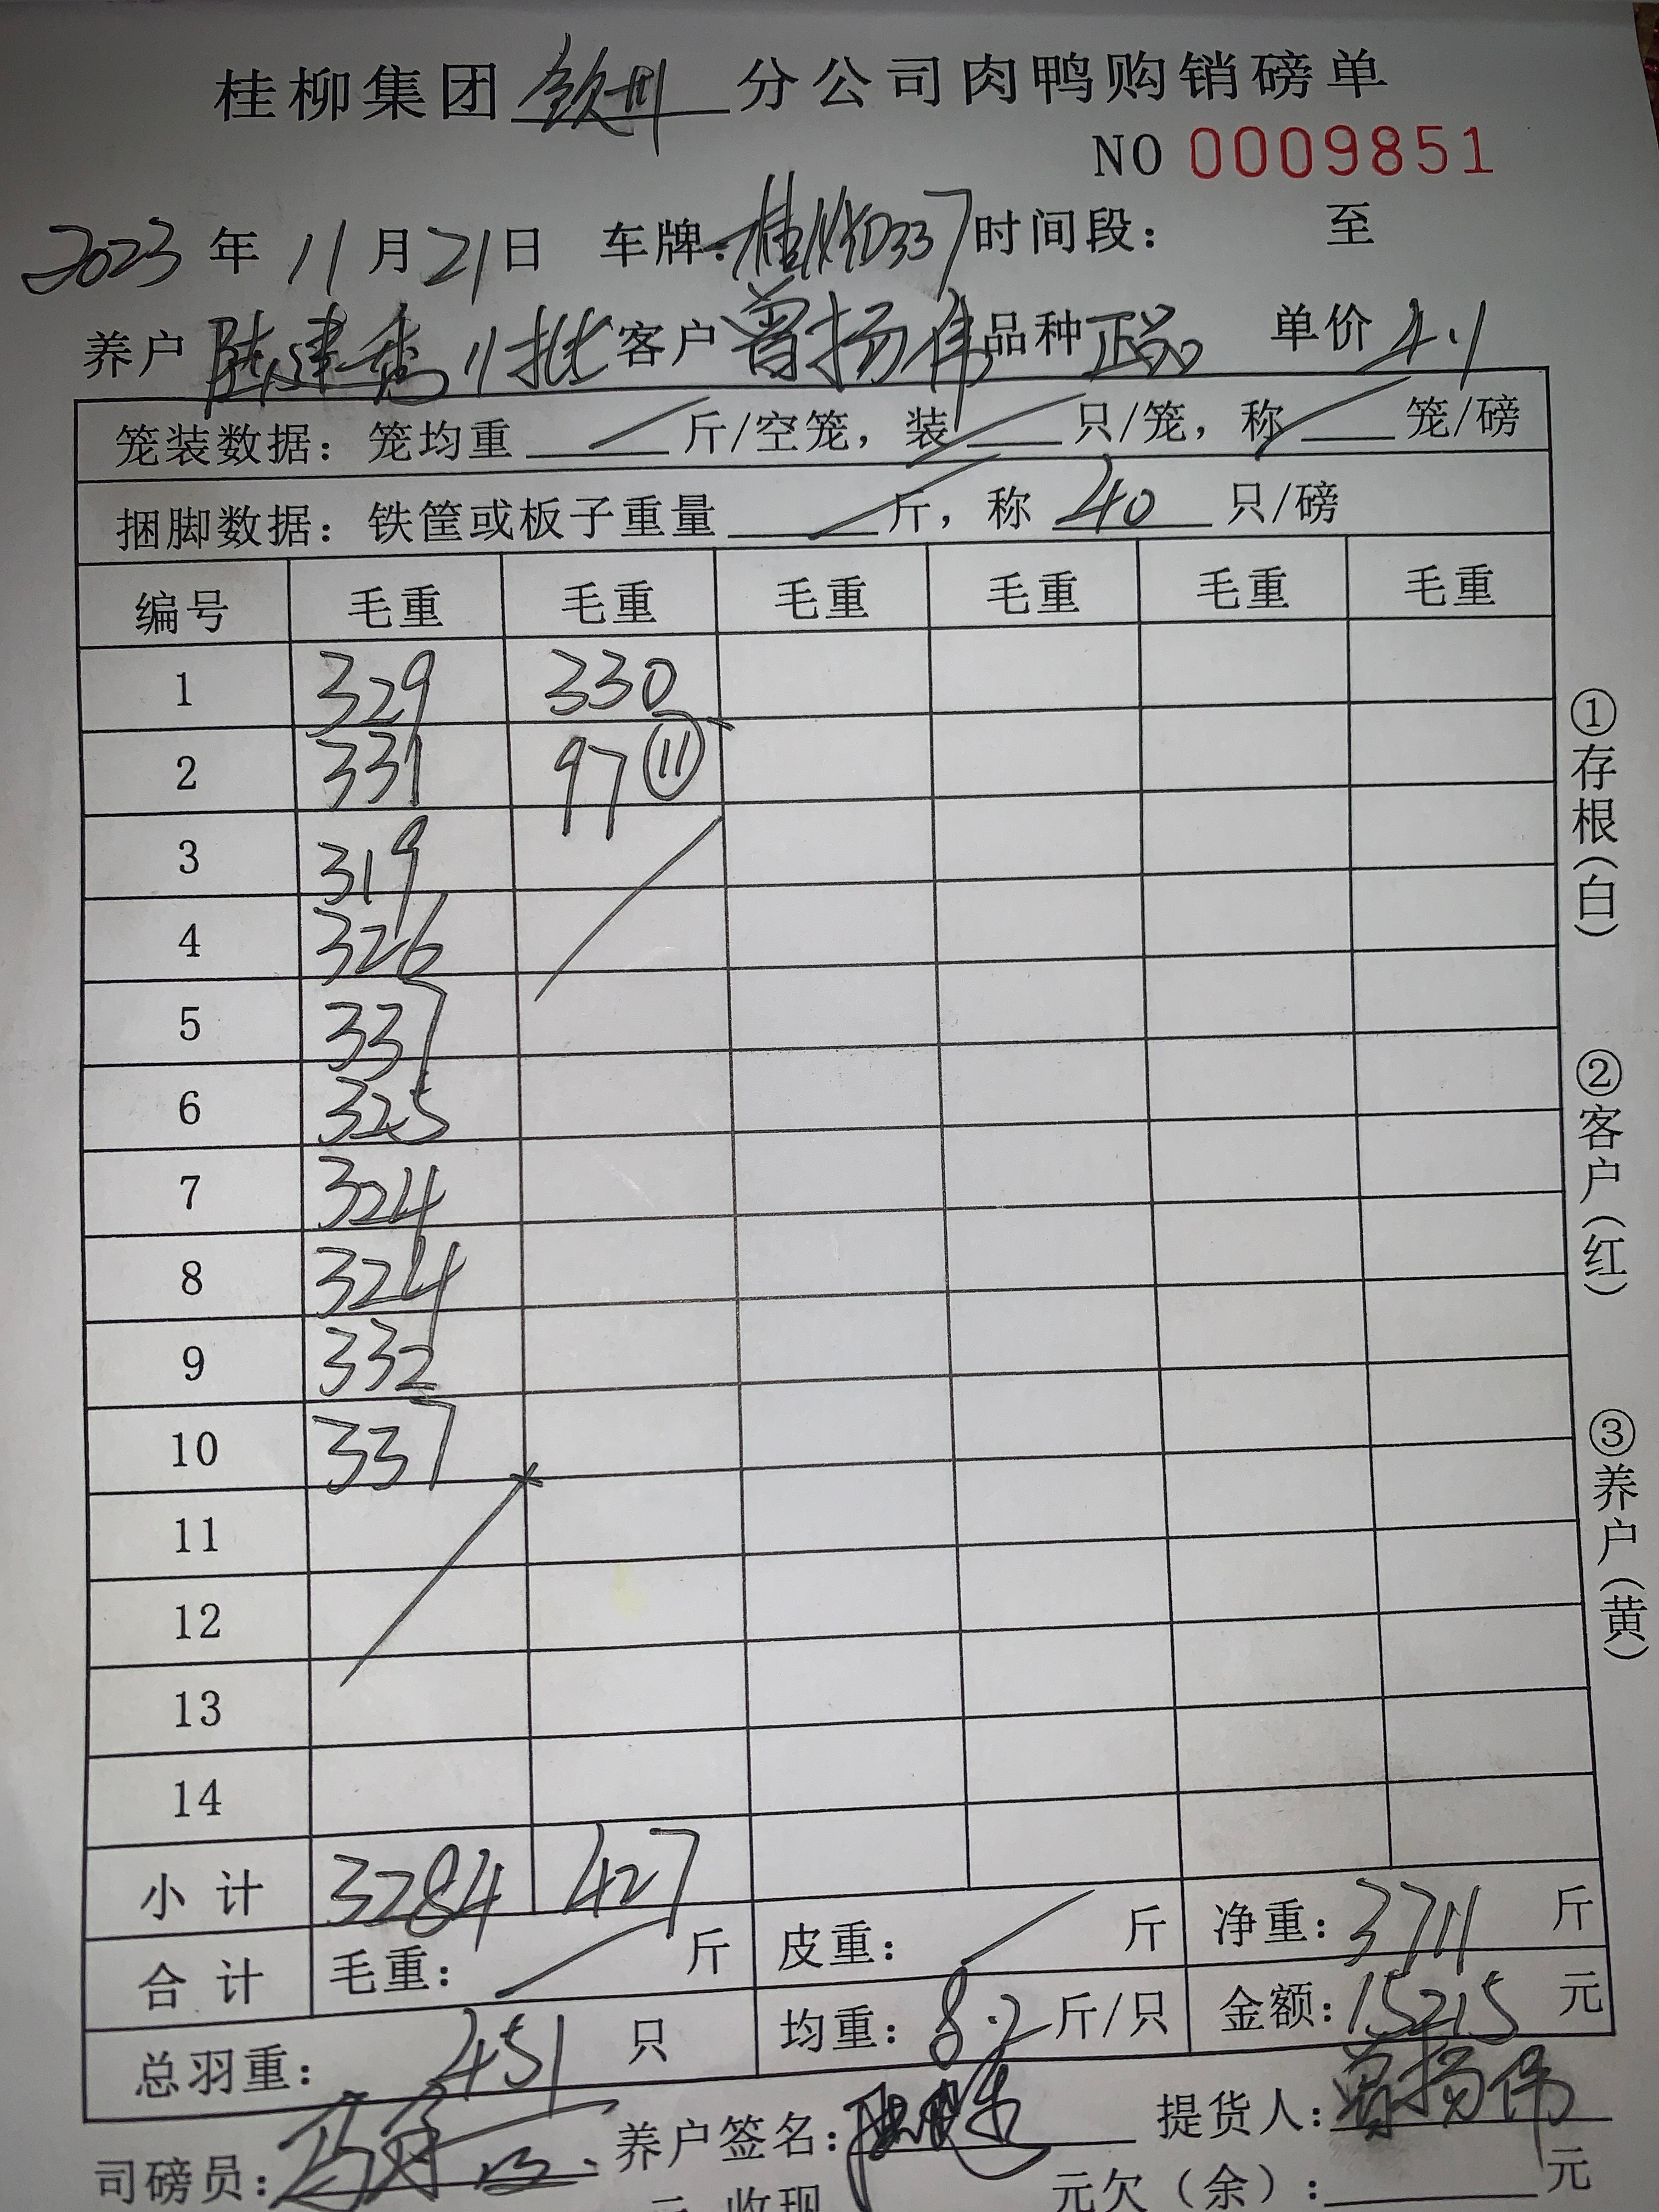 桂柳集团 钦州 分公司肉鸭购销磅单
NO 0009851
2023 年 11 月 21 日 车牌: 桂 D337 时间段: 至
养户 陆建秀 11批 客户 曾扬伟 品种 正品 单价 4.1
笼装数据: 笼均重 / 斤/空笼, 装 / 只/笼, 称 / 笼/磅
捆脚数据: 铁筐或板子重量 / 斤, 称 40 只/磅
编号 毛重 毛重 毛重 毛重 毛重 毛重
1 329 330
2 331 97 ⑪
3 319
4 326
5 337
6 325
7 324
8 324
9 332
10 337
11
12
13
14
小计 3284 427
合计 毛重: / 斤 皮重: / 斤 净重: 3711 斤
总羽重: 451 只 均重: 8.2 斤/只 金额: 15215 元
司磅员: 养户签名: 提货人: 曾扬伟
元 收现 元欠(余): 元
①存根(白) ②客户(红) ③养户(黄)